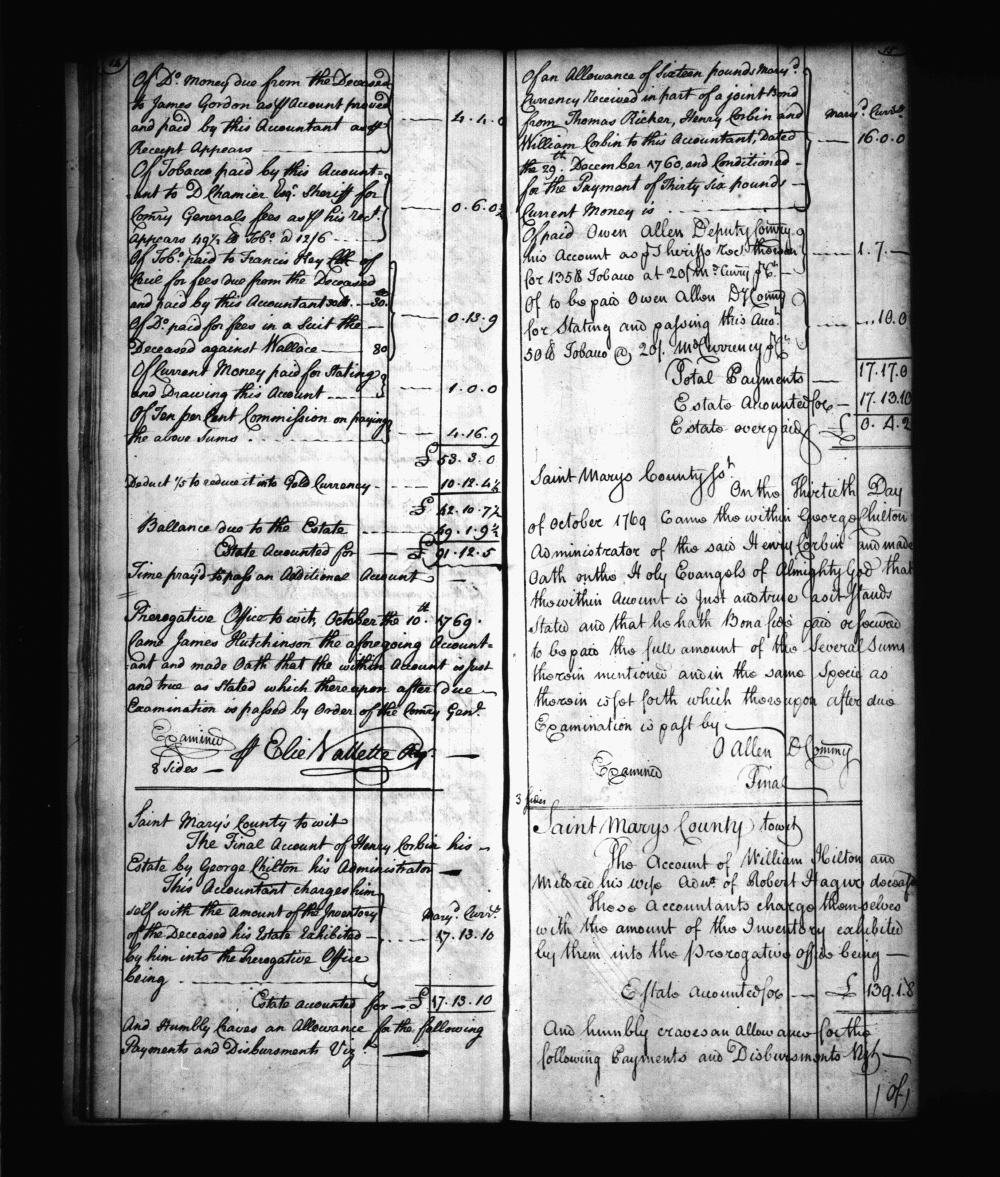 14
Of Do. Money due from the Deceased
to James Gordon as ⅌ Account proved
and paid by this Accountant as ⅌ 4.4.0
Receipt Appears
Of Tobacco paid by this Account=
ant to D Chamier Esqr. Sheriff for
Comry Generals fees as ⅌ his rect. 0.6.0½
Appears 49½ lb Tobo. a 12/6
Of Tobo. paid to Francis Key Clk of
Cecil for fees due from the Deceased
and paid by this Accountant 30.
Of Do. paid for fees in a Suit the 0.13.9
Deceased against Wallace 80
Of Current Money paid for Stating
and Drawing this Account 1.0.0
Of Ten per Cent Commission on paying
the above Sums 4.16.9
£ 53.3.0
Deduct 1/5 to reduce it into Gold Currency 10.12.4½
£ 42.10.7½
Ballance due to the Estate 49.1.9½
Estate Accounted for £ 91.12.5
Time pray'd to pass an Additional Account
Prerogative Office to wit, October the 10th 1769.
Came James Hutchinson the aforegoing Account=
ant and made Oath that the within Account is just
and true as Stated which thereupon after due
Examination is passed by Order of the Comry Genl.
Examined ⅌ Elie Vallette Reg.
8 Sides
Saint Mary's County to wit
The Final Account of Henry Corbin his
Estate by George Chilton his Administrator
This Accountant charges him
self with the Amount of the Inventory Maryd. Curry.
of the Deceased his Estate Exhibited 17.13.10
by him into the Prerogative Office
being
Estate accounted for £ 17.13.10
And Humbly Craves an Allowance for the following
Payments and Disbursments Viz
15
Of an Allowance of Sixteen pounds Maryd.
Currency Received in part of a joint Bond
from Thomas Ricker, Henry Corbin and Maryd. Curry.
William Corbin to this Accountant, Dated 16.0.0
the 29th. December 1760, and Conditioned
for the Payment of Thirty Six pounds
Current Money is
Of paid Owen Allen Deputy Comry
his Account as ⅌ Sheriffs rect. thereon 1.7.
for 135 lb Tobacco at 20/ Md. Curry ⅌ Ct.
Of to be paid Owen Allen Dy Comry
for Stating and passing this Acct. ..10.0
50 lb Tobacco @ 20/. Md Currency ⅌ Ct.
Total Payments 17.17.0
Estate Accounted for 17.13.10
Estate overpaid £ 0.4.2
Saint Marys County Sst.
On the Thirtieth Day
of October 1769 Came the within George Chilton
Administrator of the said Henry Corbin and made
Oath on the Holy Evangels of Almighty God that
the within Account is Just and true as it stands
Stated and that he hath Bona fide paid or secured
to be paid the full amount of the Several Sums
therein mentioned and in the same Specie as
therein is set forth which thereupon after due
Examination is past by
O Allen D Commy
Examined Final
3 Sides
Saint Marys County towit
The Account of William Hilton and
Mildred his wife Admx. of Robert Hagur deceased
These Accountants charge themselves
with the amount of the Inventory exhibited
by them into the prerogative office being
Estate accounted for £ 139.1.8
And humbly craves an allowance for the
following Payments and Disbursments Vizt
Of